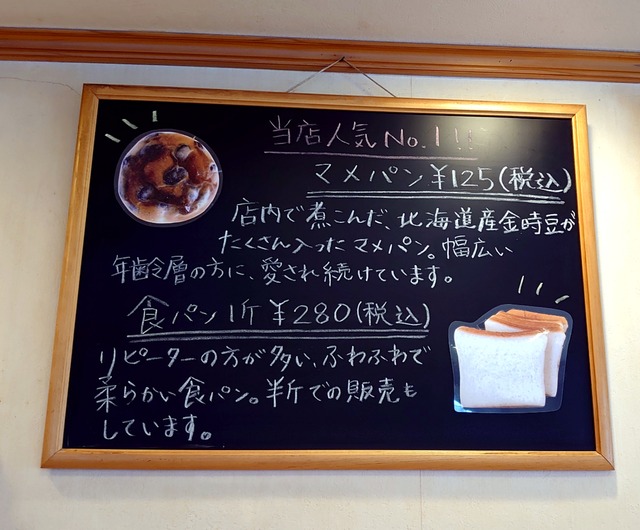 当店人気No.1!!
マメパン¥125(税込)
店内で煮こんだ、北海道産金時豆が
たくさん入ったマメパン。幅広い
年齢層の方に、愛され続けています。
食パン1斤¥280(税込)
リピーターの方が多い、ふわふわで
柔らかい食パン。半斤での販売も
しています。